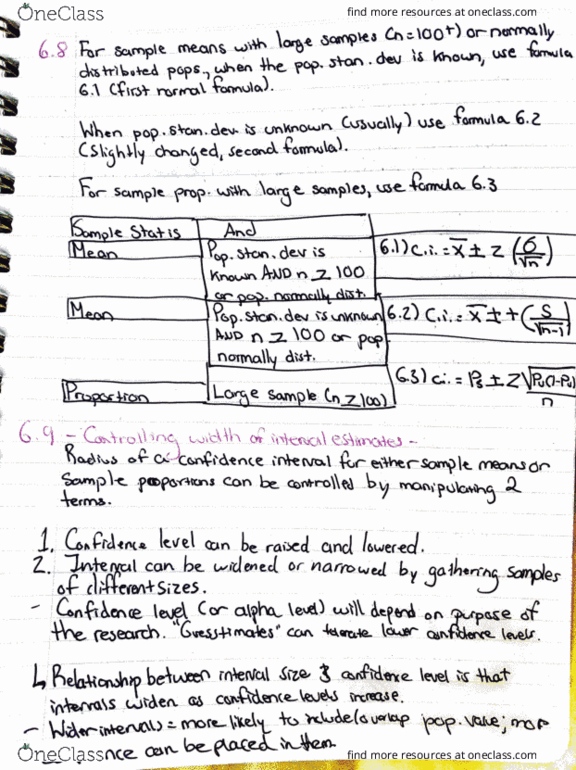 OneClass
find more resources at oneclass.com
6.8 For sample means with large samples (n=100+) or normally
distributed pops, when the pop. stan. dev is known, use formula
6.1 (first normal formula).
When pop. stan. dev. is unknown (usually) use formula 6.2
(slightly changed, second formula).
For sample prop. with large samples, use formula 6.3
Sample Stat is And
Mean Pop. stan. dev is
known AND n ≥ 100
or pop. normally dist.
6.1) c.i. = x̄ ± z (σ/√n)
Mean Pop. stan. dev is unknown
AND n ≥ 100 or pop
normally dist.
6.2) c.i. = x̄ ± t (s/√n-1)
Proportion Large sample (n ≥ 100)
6.3) c.i. = Ps ± Z √Pu(1-Pu)/n
6.9 - Controlling width of interval estimates -
Radius of a confidence interval for either sample means or
sample proportions can be controlled by manipulating 2
terms.
1. Confidence level can be raised and lowered.
2. Interval can be widened or narrowed by gathering samples
of different sizes.
- Confidence level (or alpha level) will depend on purpose of
the research. "Guesstimates" can tolerate lower confidence levels.
↳ Relationship between interval size & confidence level is that
intervals widen as confidence levels increase.
- Wider intervals = more likely to include/overlap pop. value; more
nce can be placed in them
OneClass
find more resources at oneclass.com